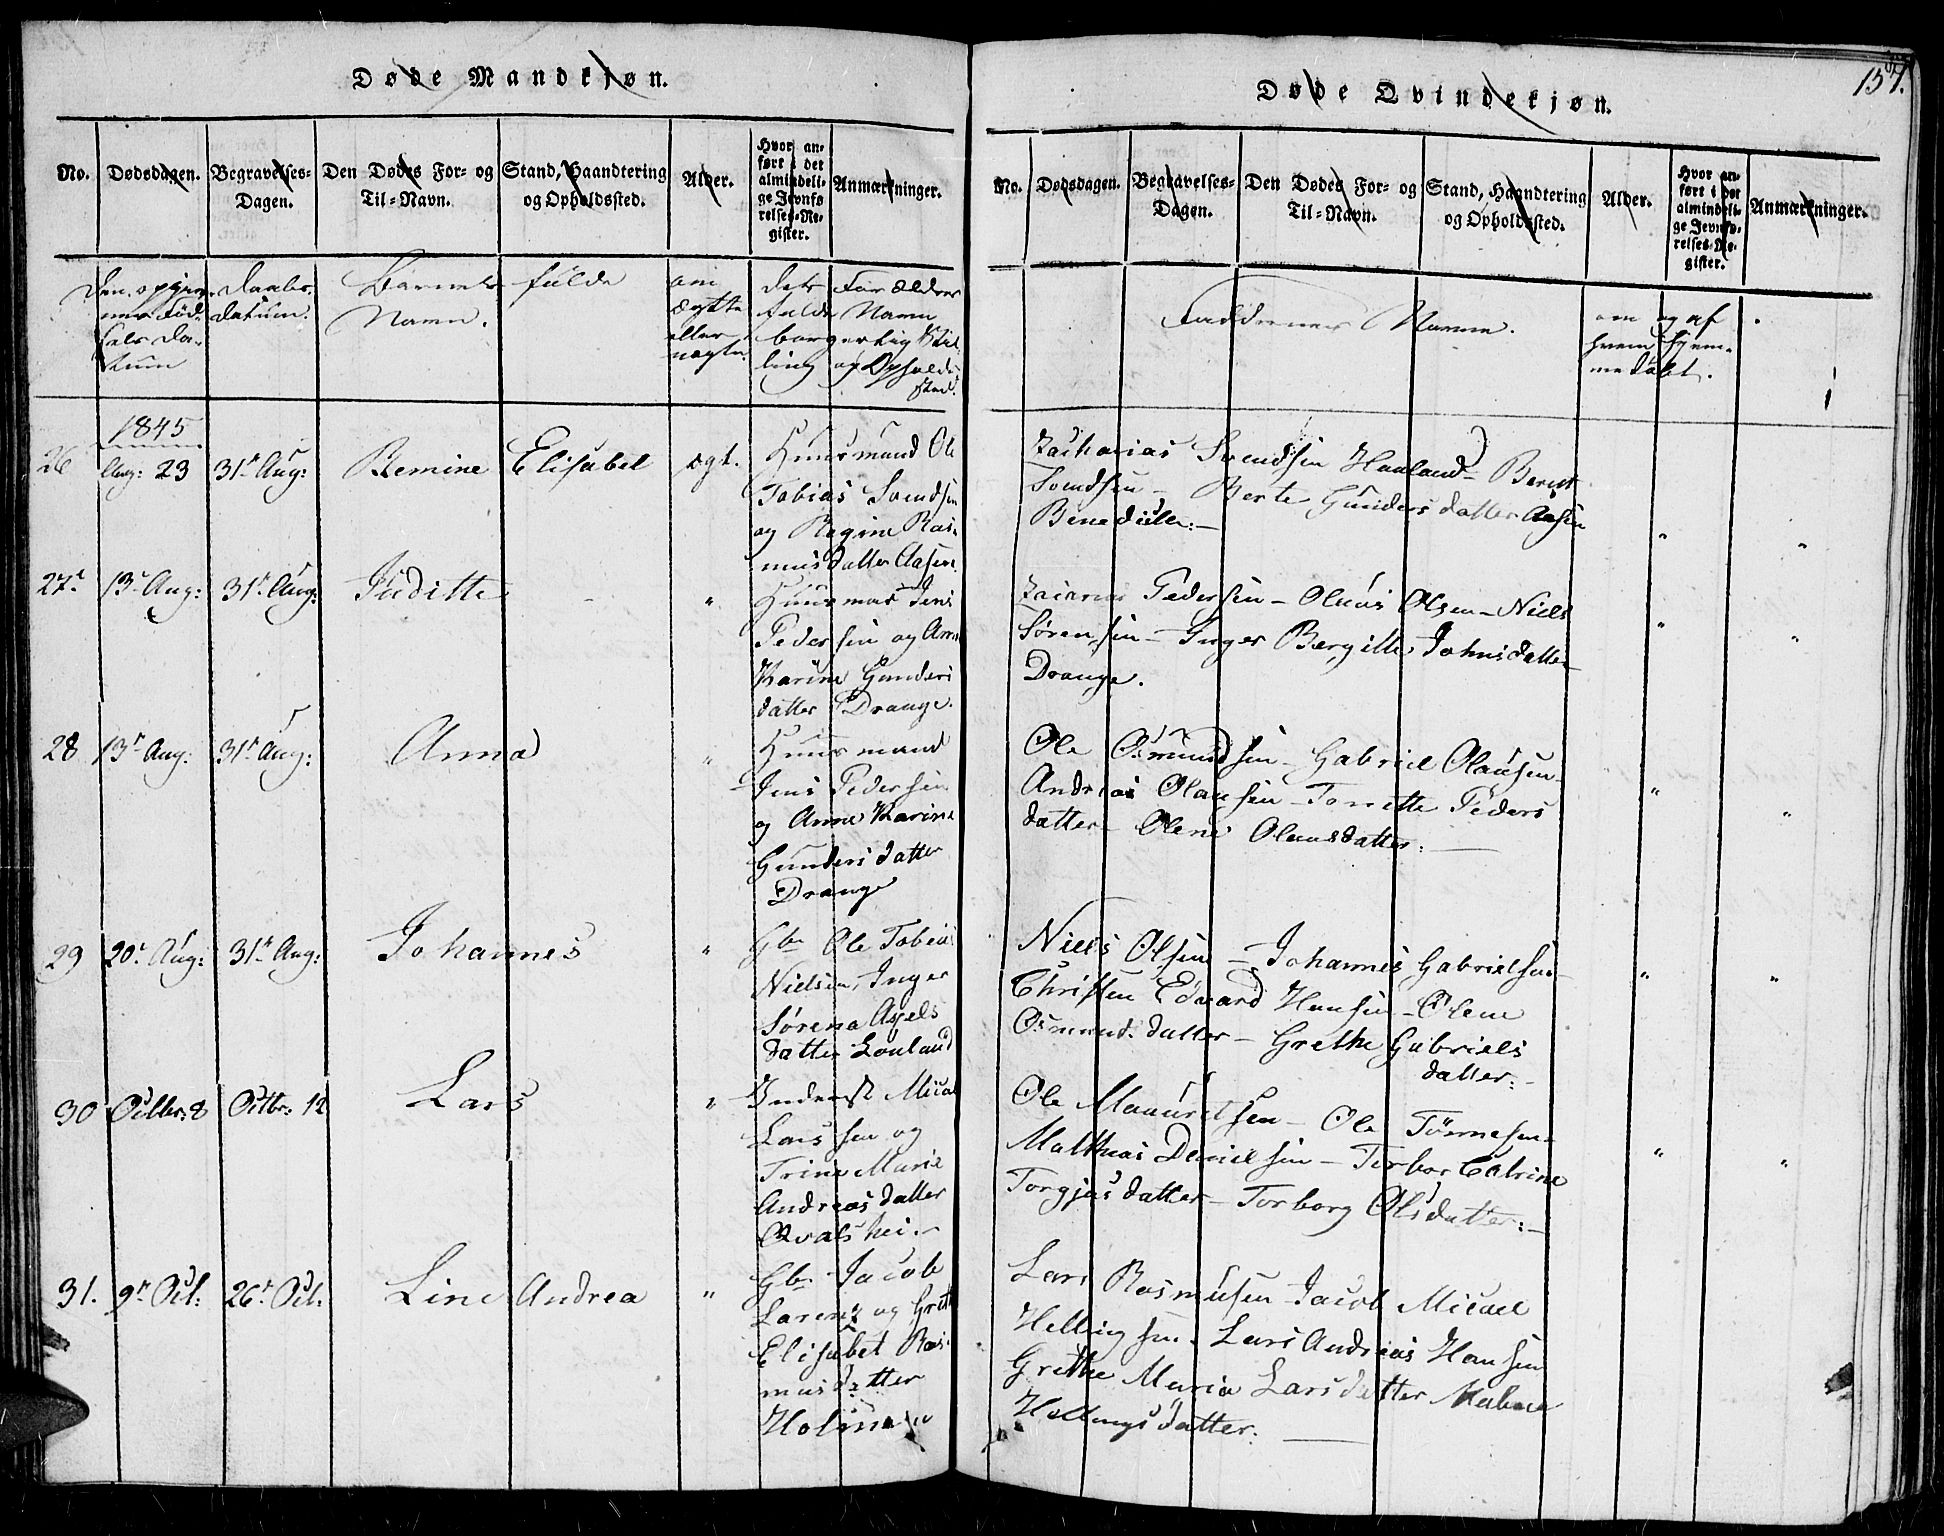 Døde Mandkjøn.
No.
Dødsdagen.
Begravelses-
Dagen.
Den Dødes For- og
Til-Navn.
Stand, Haandtering
og Opholdssted.
Alder.
Hvor an-
ført i det
almindeli-
ge Jevnfø
relses-Re-
gister.
Anmærkninger.
Den opgiv-
ne Fød-
sels Da-
tum
Daabs
datum.
Barnets fulde
Navn.
om
ægte
eller
uægte.
Dets Forældres
fulde Navn
borgerlig Stil-
ling og Opholds
sted.
1845
26 Aug: 23 31te Aug: Bemine Elisabet ægt.
Huusmand Ole
Tobias Svendsen
og Regine Ras-
musdatter Aasen.
27. 13. Aug: 31te Aug: Juditte "
Huusmand Jens
Pedersen og Anne
Karine Gunders
datter Drange.
28 13te Aug: 31te Aug: Anna "
Huusmand
Jens Pedersen
og Anne Karine
Gundersdatter
Drange
29 20. Aug: 31te Aug: Johannes "
Gbr Ole Tobias
Nielsen, Inger
Sørena Axels
datter Louland
30 Octbr: 8 Octbr: 12 Lars "
Inderst Micael
Larssen og
Trine Marie
Andreasdatter
Qvalshei.-
31. 9de Oct: 26de Oct: Line Andrea "
Gbr Jacob
Larenz og Grethe
Elisabet Ras-
musdatter
Døde Qvindekjøn.
137.
No.
Dødsdagen.
Begravelses-
Dagen.
Den Dødes For- og
Til-Navn.
Stand, Haandtering
og Opholdssted.
Alder.
Hvor an-
ført i det
almindeli-
ge Jevnfø-
relses-Re-
gister.
Anmærkninger.
Faddernes Navne.
om og af
hvem hjem-
me døbt.
Zacharias Svendsen Haaland - Berent
Svendsen - Berte Gundersdatter Aasen
" "
Pedersen - Olaus Olsen - Niels
Sørensen - Inger Bergitte Johnsdatter
Drange.
" "
Ole Osmundsen - Gabriel Olausen -
Andreas Olausen - Torrette Peders
datter - Olene Olausdatter: -
" "
Niels Olsen - Johannes Gabrielsen -
Christen Edvard Hansen - Olene
Osmundsdatter - Grethe Gabriels
datter: -
" "
Ole Mauritsen - Ole Tønnesen -
Matthias Danielsen - Torbor Catrine
Torgjusdatter - Torborg Olsdatter: -
" "
Lars Rasmusen - Jacob Micael
Hellingsen - Lars Andreas Hansen
Grethe Maria Larsdatter
Hellingsdatter: